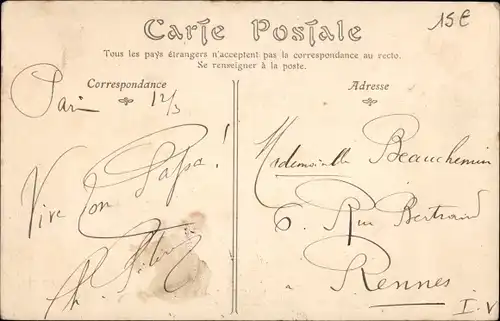 15€
Carte Postale
Tous les pays étrangers n'acceptent pas la correspondance au recto.
Se renseigner à la poste.
Correspondance
Paris 12/3
Vive ton Papa!
Adresse
Mademoiselle Beauchemin
6, Rue Bertrand
à Rennes
I-V